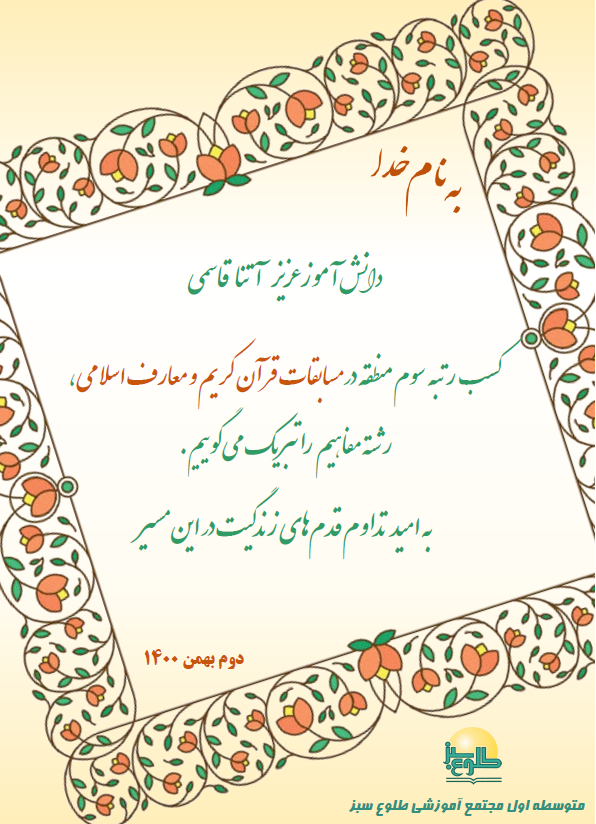 به نام خدا
دانش آموز عزیز آتنا قاسمی
کسب رتبه سوم منطقه در مسابقات قرآن کریم و معارف اسلامی،
رشته مفاهیم را تبریک می گوییم.
به امید تداوم قدم های زندگیت در این مسیر
دوم بهمن ۱۴۰۰
طلوع سبز
متوسطه اول مجتمع آموزشی طلوع سبز